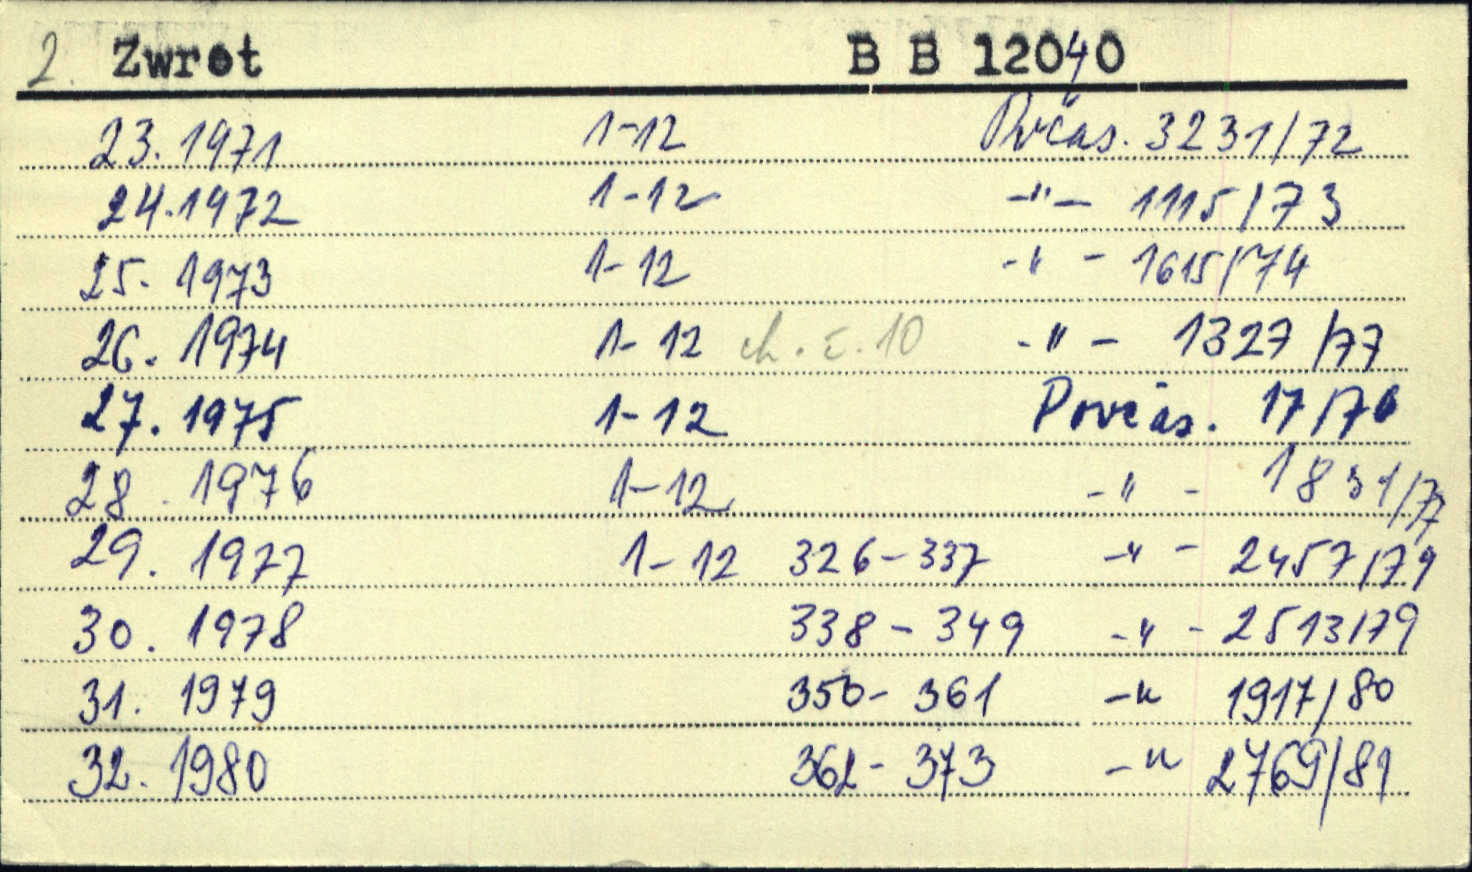 2. Zwrot B B 12040
23. 1971 1-12 Pvčas. 3231/72
24. 1972 1-12 -"- 1115/73
25. 1973 1-12 -"- 1615/74
26. 1974 1-12 ch. č. 10 -"- 1327/77
27. 1975 1-12 Povčas. 17/76
28. 1976 1-12 -"- 1831/77
29. 1977 1-12 326-337 -"- 2457/79
30. 1978 338-349 -"- 2513/79
31. 1979 350-361 -"- 1917/80
32. 1980 362-373 -"- 2769/81